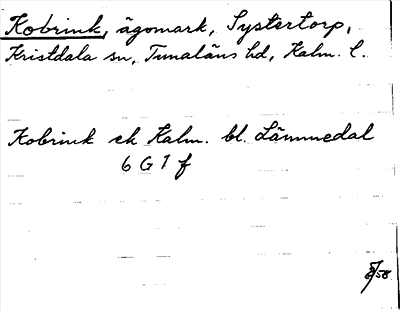 Kobrink, ägomark, Systertorp,
Kristdala sn, Tunaläns hd, Kalm. l.
Kobrink ek Kalm. bl. Lämmedal
6 G 1 f
8/58